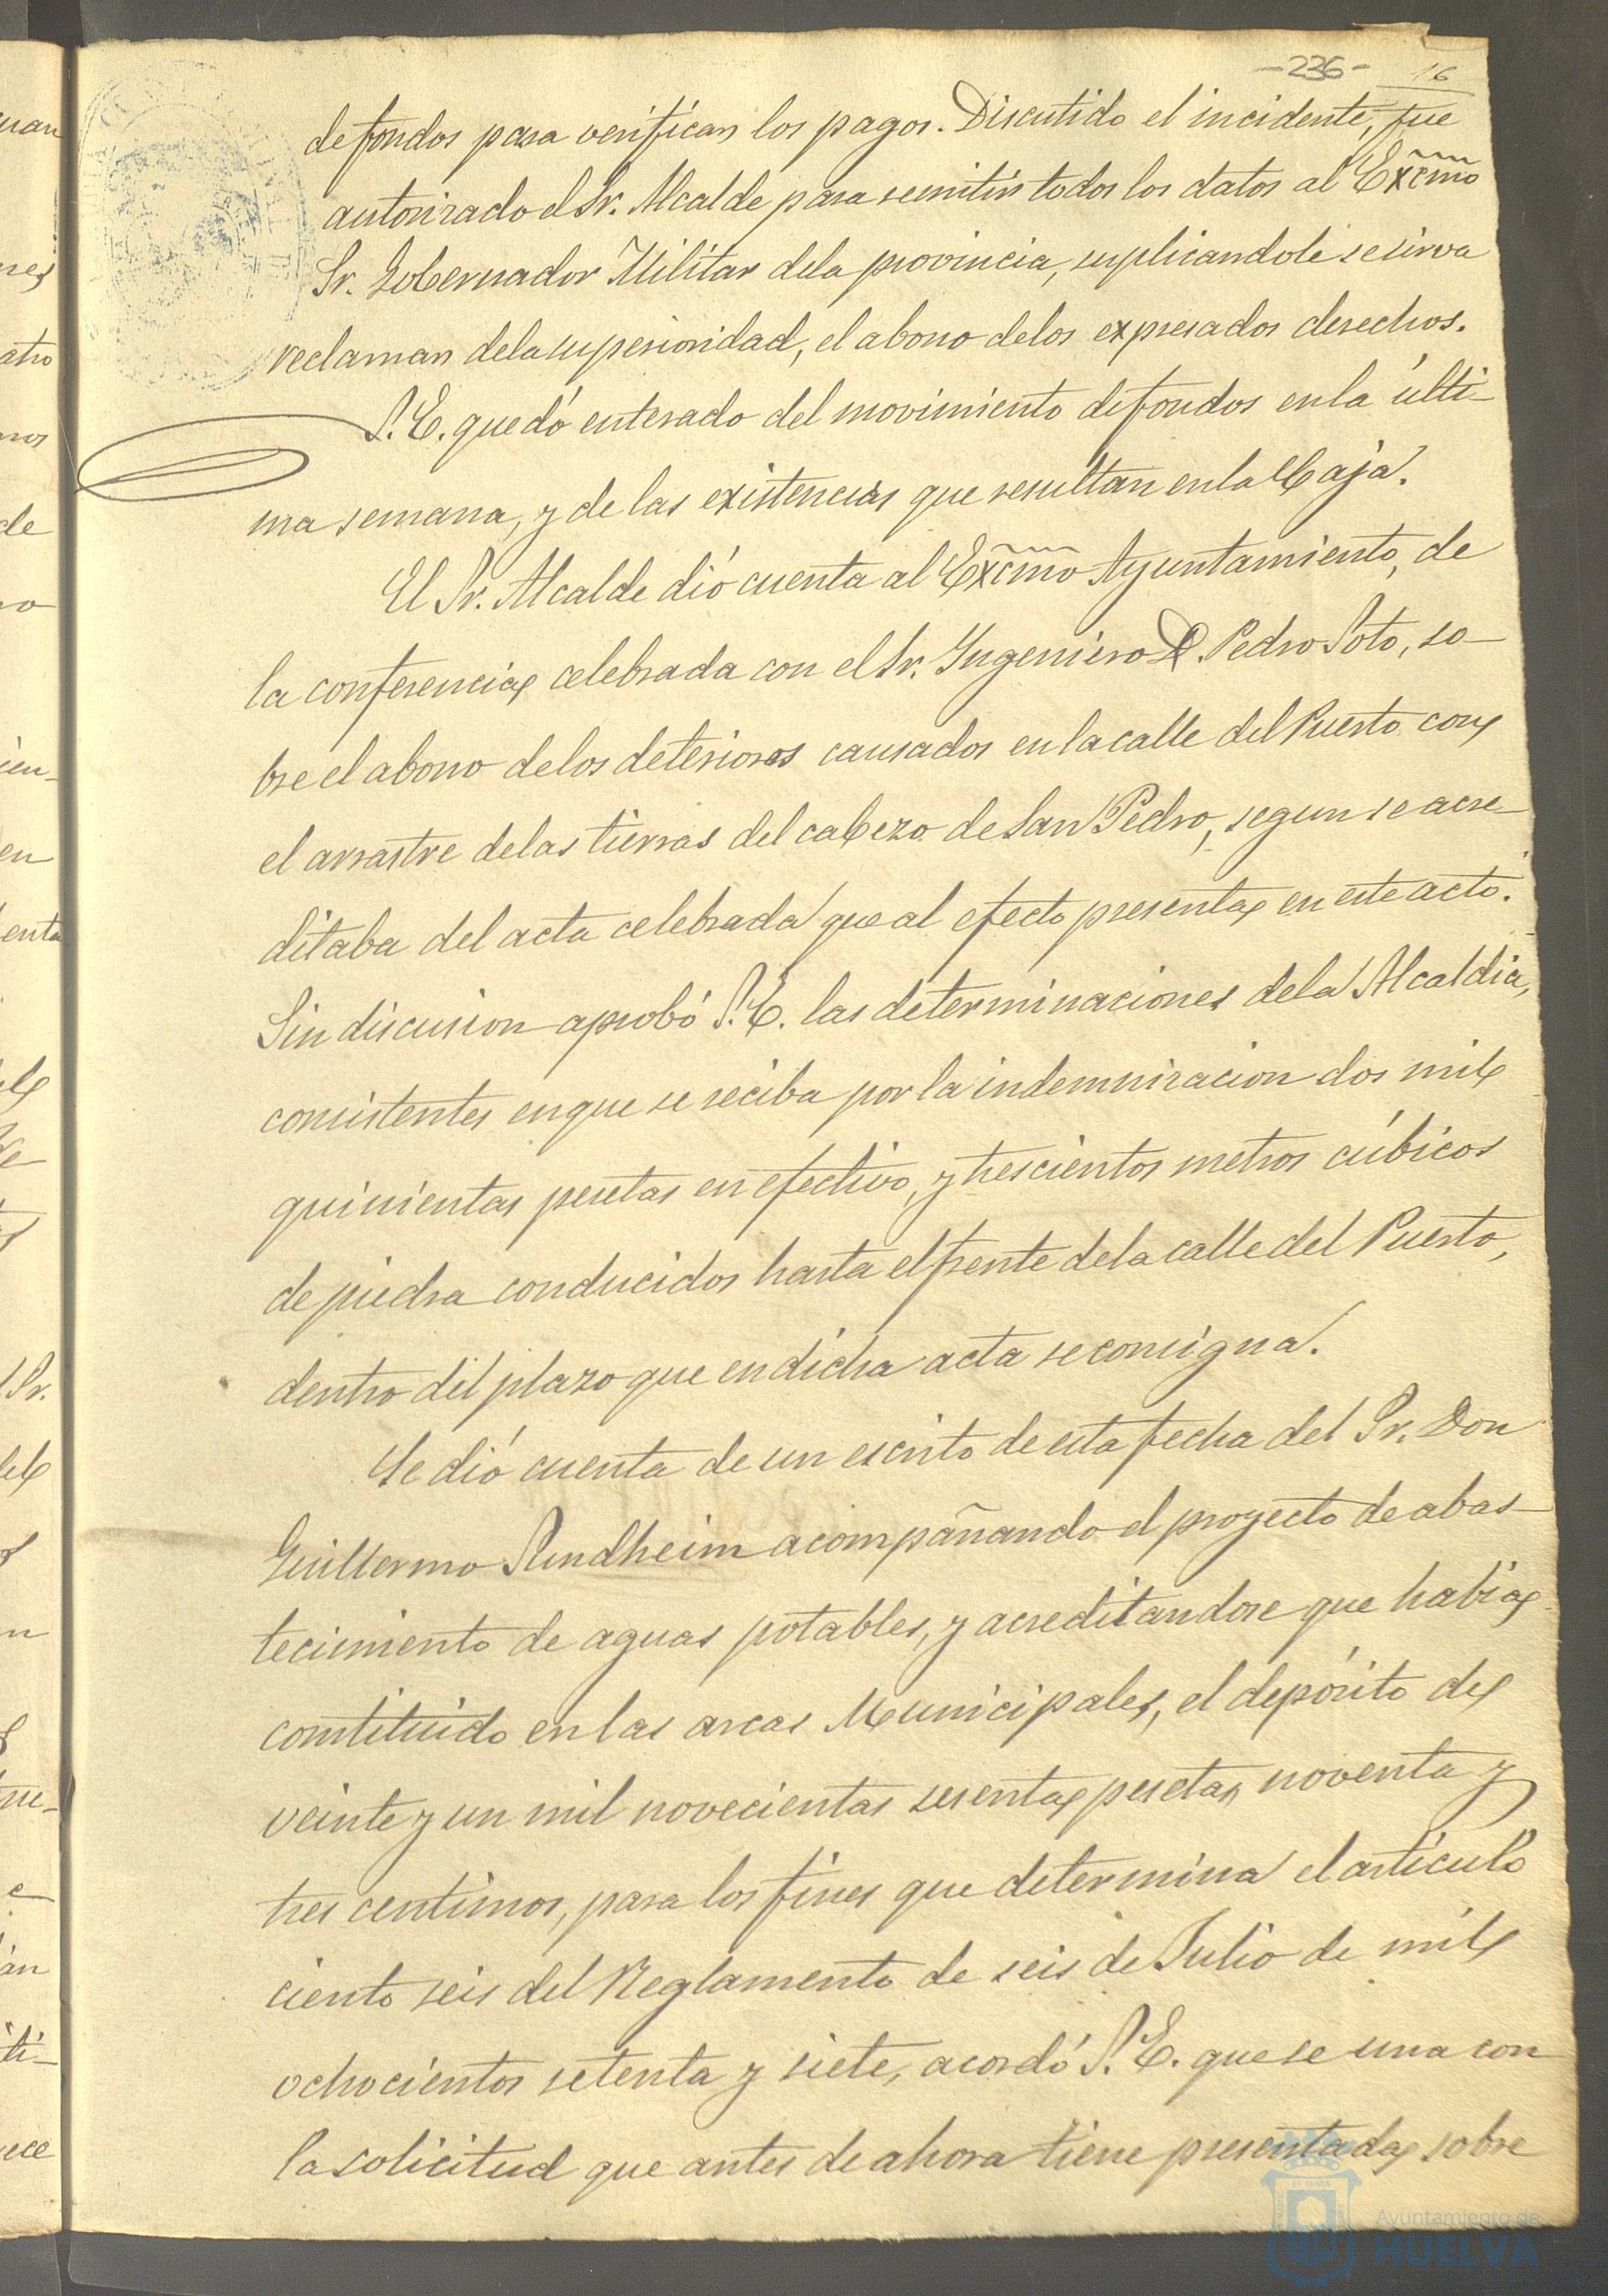 -236- 16
de fondos para verificar los pagos. Discutido el incidente, fue
autorizado el Sr. Alcalde para remitir todos los datos al Excmo
Sr. Gobernador Militar dela provincia, suplicandole se sirva
reclamar dela superioridad, el abono delos expresados derechos.
S. E. quedó enterado del movimiento de fondos en la últi-
ma semana, y de las existencias que resultan en la Caja.
El Sr. Alcalde dió cuenta al Excmo Ayuntamiento, de
la conferencia celebrada con el Sr. Yngeniero D. Pedro Soto, so-
bre el abono delos deterioros causados en la calle del Puerto con
el arrastre delas tierras del cabezo de San Pedro, segun se acre-
ditaba del acta celebrada que al efecto presenta en este acto.
Sin discusion aprobó S. E. las determinaciones dela Alcaldia,
consistentes en que se reciba por la indemnizacion dos mil
quinientas pesetas en efectivo, y trescientos metros cúbicos
de piedra conducidos hasta el frente dela calle del Puerto,
dentro del plazo que en dicha acta se consigna.
Se dió cuenta de un escrito de esta fecha del Sr. Don
Guillermo Sundheim acompañando el proyecto de abas-
tecimiento de aguas potables, y acreditandose que habia
constituido en las arcas Municipales, el depósito de
veinte y un mil novecientas sesenta pesetas noventa y
tres centimos, para los fines que determina el artículo
ciento seis del Reglamento de seis de Julio de mil
ochocientos setenta y siete, acordó S. E. que se una con
la solicitud que antes de ahora tiene presentada sobre
Ayuntamiento de
HUELVA